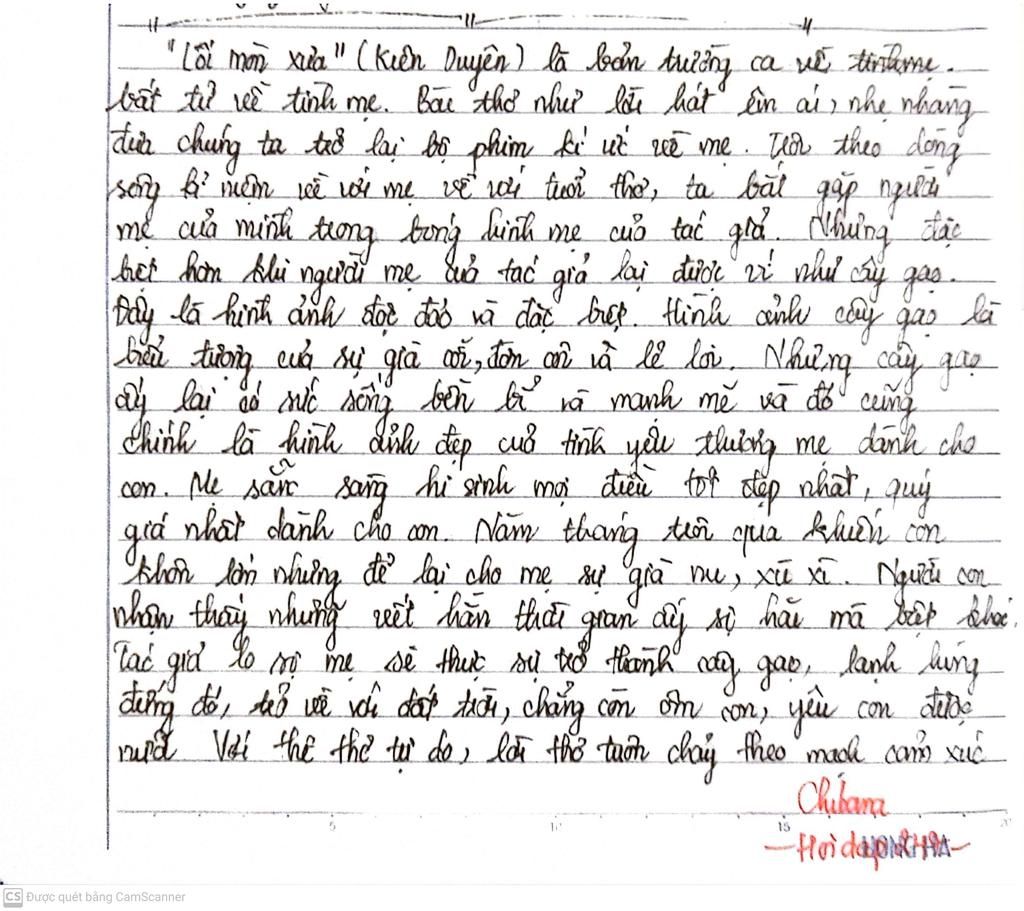 "Lối mòn xưa" (Kiên Duyên) là bản trường ca về tình mẹ.
bất tử về tình mẹ. Bài thơ như lời hát êm ái, nhẹ nhàng
đưa chúng ta trở lại bộ phim kí ức về mẹ. Trôi theo dòng
sông kỉ niệm về với mẹ về với tuổi thơ, ta bắt gặp người
mẹ của mình trong bóng hình mẹ của tác giả. Nhưng đặc
biệt hơn khi người mẹ của tác giả lại được ví như cây gạo.
Đây là hình ảnh độc đáo và đặc biệt. Hình ảnh cây gạo là
biểu tượng của sự già cỗi, đơn côi và lẻ loi. Nhưng cây gạo
ấy lại có sức sống bền bỉ và mạnh mẽ và đó cũng
chính là hình ảnh đẹp của tình yêu thương mẹ dành cho
con. Mẹ sẵn sàng hi sinh mọi điều tốt đẹp nhất, quý
giá nhất dành cho con. Năm tháng trôi qua khiến con
khôn lớn nhưng để lại cho mẹ sự già nu, xù xì. Người con
nhận thấy những vết hằn thời gian ấy sợ hãi mà bật khóc.
Tác giả lo sợ mẹ sẽ thực sự trở thành cây gạo, lạnh lùng
đứng đó, trở về với đất trời, chẳng còn ôm con, yêu con được
nữa. Với thể thơ tự do, lời thơ tuôn chảy theo mạch cảm xúc
Chibana
HONG HA
5 10 15 20
CS Được quét bằng CamScanner